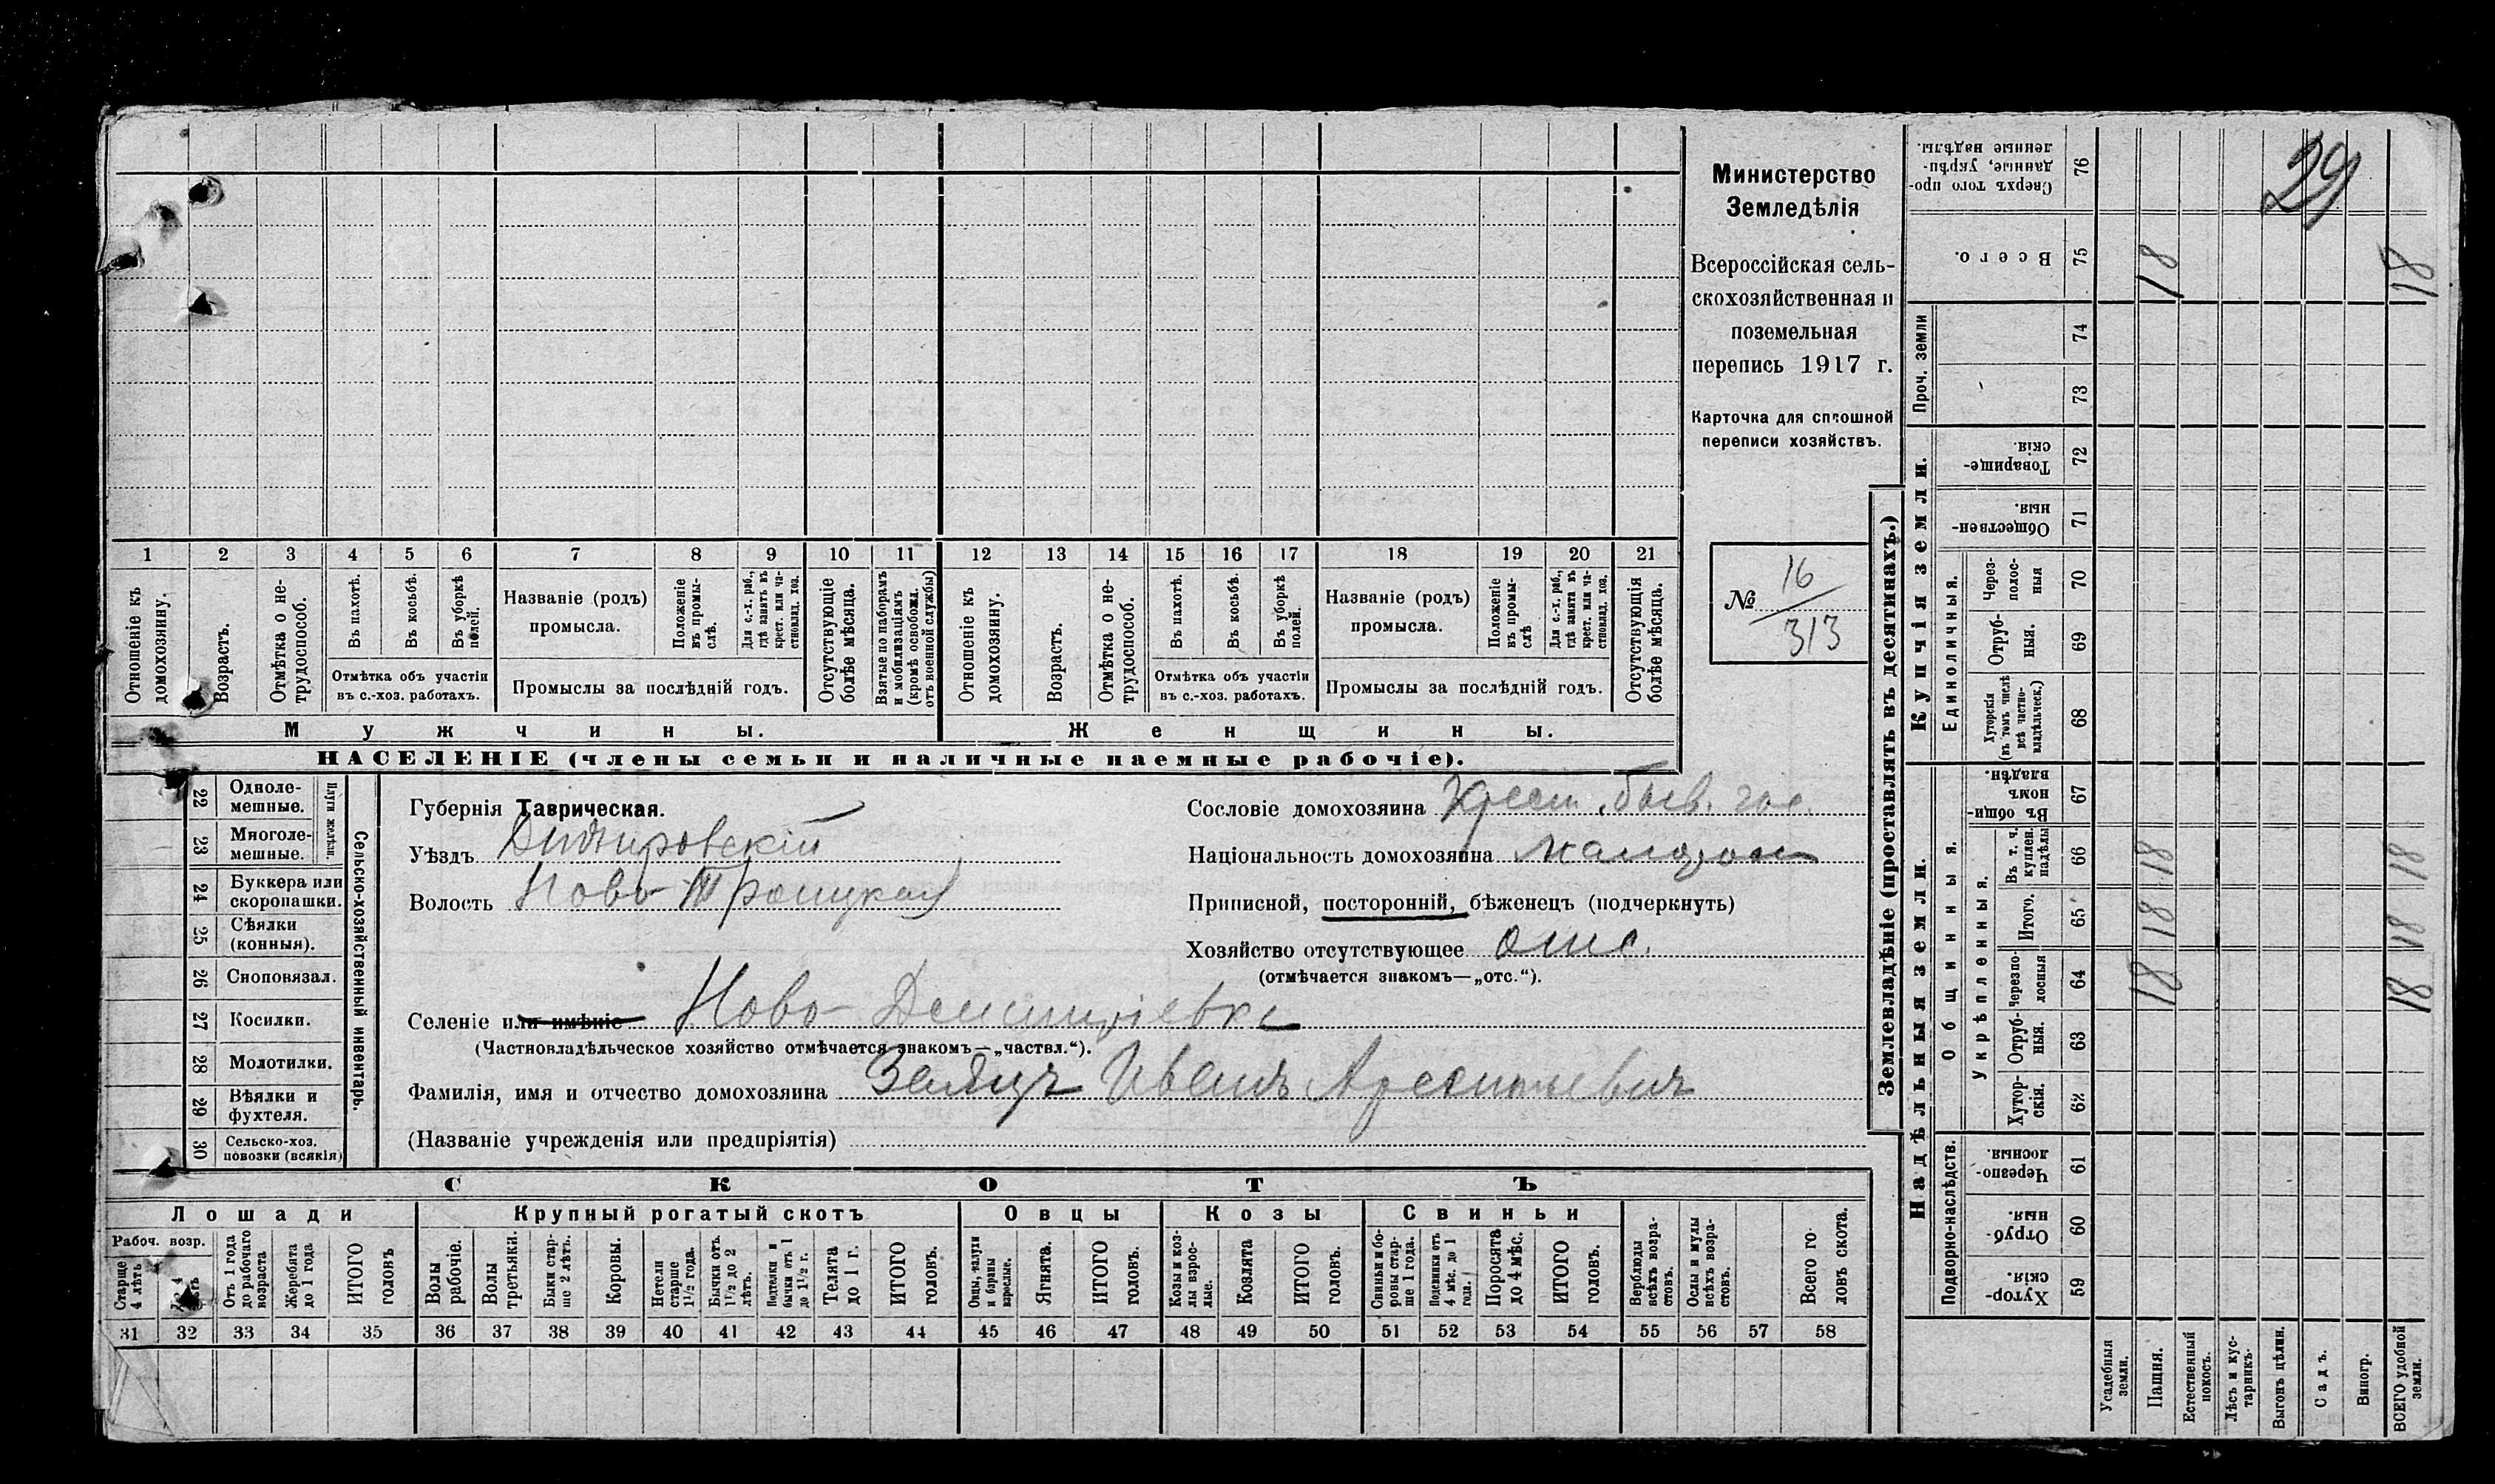 1 2 3 4 5 6 7 8 9 10 11 12 13 14 15 16 17 18 19 20 21
Отношеніе къ домохозяину.
Возрастъ.
Отмѣтка о не-
трудоспособ.
Въ пахотѣ.
Въ косьбѣ.
Въ уборкѣ
полей.
Отмѣтка объ участіи
въ с.-хоз. работахъ.
Названіе (родъ)
промысла.
Положеніе
въ промы-
слѣ.
Для с.-х. раб.,
гдѣ занятъ въ
крест. или ча-
стновлад. хоз.
Промыслы за послѣдній годъ.
Отсутствующіе
болѣе мѣсяца.
Взятые по наборамъ
и мобилизаціямъ
(кромѣ освобожд.
отъ военной службы)
Отношеніе къ
домохозяину.
Возрастъ.
Отмѣтка о не-
трудоспособ.
Въ пахотѣ.
Въ косьбѣ.
Въ уборкѣ
полей.
Отмѣтка объ участіи
въ с.-хоз. работахъ.
Названіе (родъ)
промысла.
Положеніе
въ промы-
слѣ
Для с.-х. раб.,
гдѣ занята въ
крест. или ча-
стновлад. хоз.
Промыслы за послѣдній годъ.
Отсутствующія
болѣе мѣсяца.
Мужчины.
Женщины.
НАСЕЛЕНІЕ (члены семьи и наличные наемные рабочіе).
Министерство
Земледѣлія
Всероссійская сель-
скохозяйственная и
поземельная
перепись 1917 г.
Карточка для сплошной
переписи хозяйствъ.
№ 16
313
22 Одноле-
мешные.
23 Многоле-
мешные.
Плуги желѣзн.
24 Буккера или
скоропашки.
25 Сѣялки
(конныя).
26 Сноповязал.
27 Косилки.
28 Молотилки.
29 Вѣялки и
фухтеля.
30 Сельско-хоз.
повозки (всякія)
Сельско-хозяйственный инвентарь.
Губернія Таврическая.
Уѣздъ Днѣпровскій
Волость Ново-Троицкая
Сословіе домохозяина Крест. бывш. гос.
Національность домохозяина малорос
Приписной, посторонній, бѣженецъ (подчеркнуть)
Хозяйство отсутствующее отс.
(отмѣчается знакомъ—„отс.“).
Селеніе или имѣніе Ново-Дмитріевка
(Частновладѣльческое хозяйство отмѣчается знакомъ—„частвл.“).
Фамилія, имя и отчество домохозяина Заяцъ Иванъ Арсентіевичъ
(Названіе учрежденія или предпріятія)
СКОТЪ
Лошади
Крупный рогатый скотъ
Овцы
Козы
Свиньи
Рабоч. возр.
Старше
4 лѣтъ
Отъ 1 года
до рабочаго
возраста
Жеребята
до 1 года
ИТОГО
головъ
Волы
рабочіе.
Волы
третьяки.
Быки стар-
ше 2 лѣтъ.
Коровы.
Нетели
старше
1½ года.
Бычки отъ
1½ до 2
лѣтъ.
Подтелки и
бычки отъ 1
до 1½ г.
Телята
до 1 г.
ИТОГО
головъ.
Овцы, валухи
и бараны
взрослые.
Ягнята.
ИТОГО
головъ.
Козы и коз-
лы взрос-
лые.
Козлята
ИТОГО
головъ.
Свиньи и бо-
ровы стар-
ше 1 года.
Подсвинки отъ
4 мѣс. до 1
года.
Поросята
до 4 мѣс.
ИТОГО
головъ.
Верблюды
всѣхъ возра-
стовъ.
Ослы и мулы
всѣхъ возра-
стовъ.
Всего го-
ловъ скота.
31 32 33 34 35 36 37 38 39 40 41 42 43 44 45 46 47 48 49 50 51 52 53 54 55 56 57 58
Землевладѣніе (проставлять въ десятинахъ.)
29
Сверхъ того про-
данные, укрѣп-
ленные надѣлы.
76
Всего.
75 18 18
Проч. земли
74
73
Купчія земли.
Товарище-
скія
72
Обществен-
ныя.
71
Единоличныя.
Через-
полос-
ныя
70
Отруб-
ныя.
69
Хуторскія
(въ томъ числѣ
всѣ частно-
владѣльческ.)
68
Надѣльныя земли.
Общинныя.
Въ общи-
номъ
владѣн.
67
Укрѣпленныя.
Въ т. ч.
куплен.
надѣлы
66 18 18
Итого.
65 18 18
Черезпо-
лосныя
64 18 18
Отруб-
ныя.
63
Хутор-
скія.
62
Подворно-наслѣдств.
Черезпо-
лосныя.
61
Отруб-
ныя.
60
Хутор-
скія.
59
Усадебныя
земли.
Пашня.
Естественный
покосъ.
Лѣсъ и кус-
тарникъ.
Выгонъ цѣлин.
Садъ.
Виногр.
ВСЕГО удобной
земли.